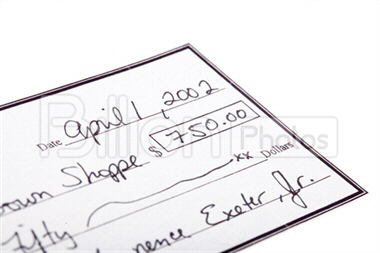 Date April 1, 2002
own Shoppe $ 750.00
Fifty xx Dollars
nence Exeter, Jr.
Billion Photos